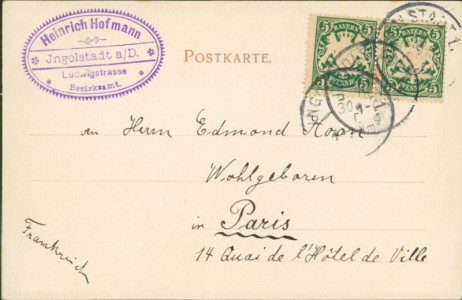 Heinrich Hofmann
Jngolstadt a/D.
Ludwigstrasse
Bezirksamt.
POSTKARTE.
5 BAYERN 5
5 PFENNIG 5
5 BAYERN 5
5 PFENNIG 5
An Herrn Edmond
Wohlgeboren
in Paris
14 Quai de l'Hôtel de Ville
Frankreich